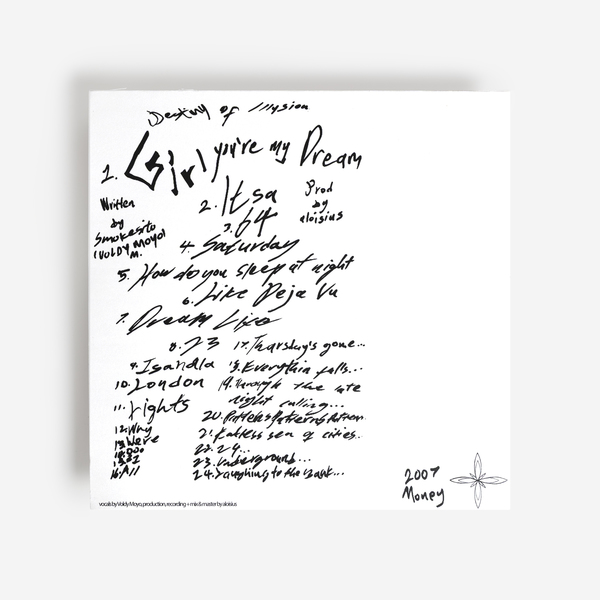 Destiny of Illusion
1. Girl you're my Dream
Written
by
Smokesito
(VOLDY MOYO)
M.
2. Itsa
Prod
by
aloisius
3. 64
4. Saturday
5. How do you sleep at night
6. Like Deja Vu
7. Dream Live
8. 23
9. Isandla
10. London
11. Lights
12. Why
13. Were
14. Doo
15. 21
16. All
17. Thursday's gone...
18. Everythin falls...
19. Through the late
night calling...
20. Patterns
21. sea of cities..
22. 24...
23. Underground...
24. Laughing to the bank...
2007
Money
vocals by Voldy Moyo, production, recording + mix & master by aloisius